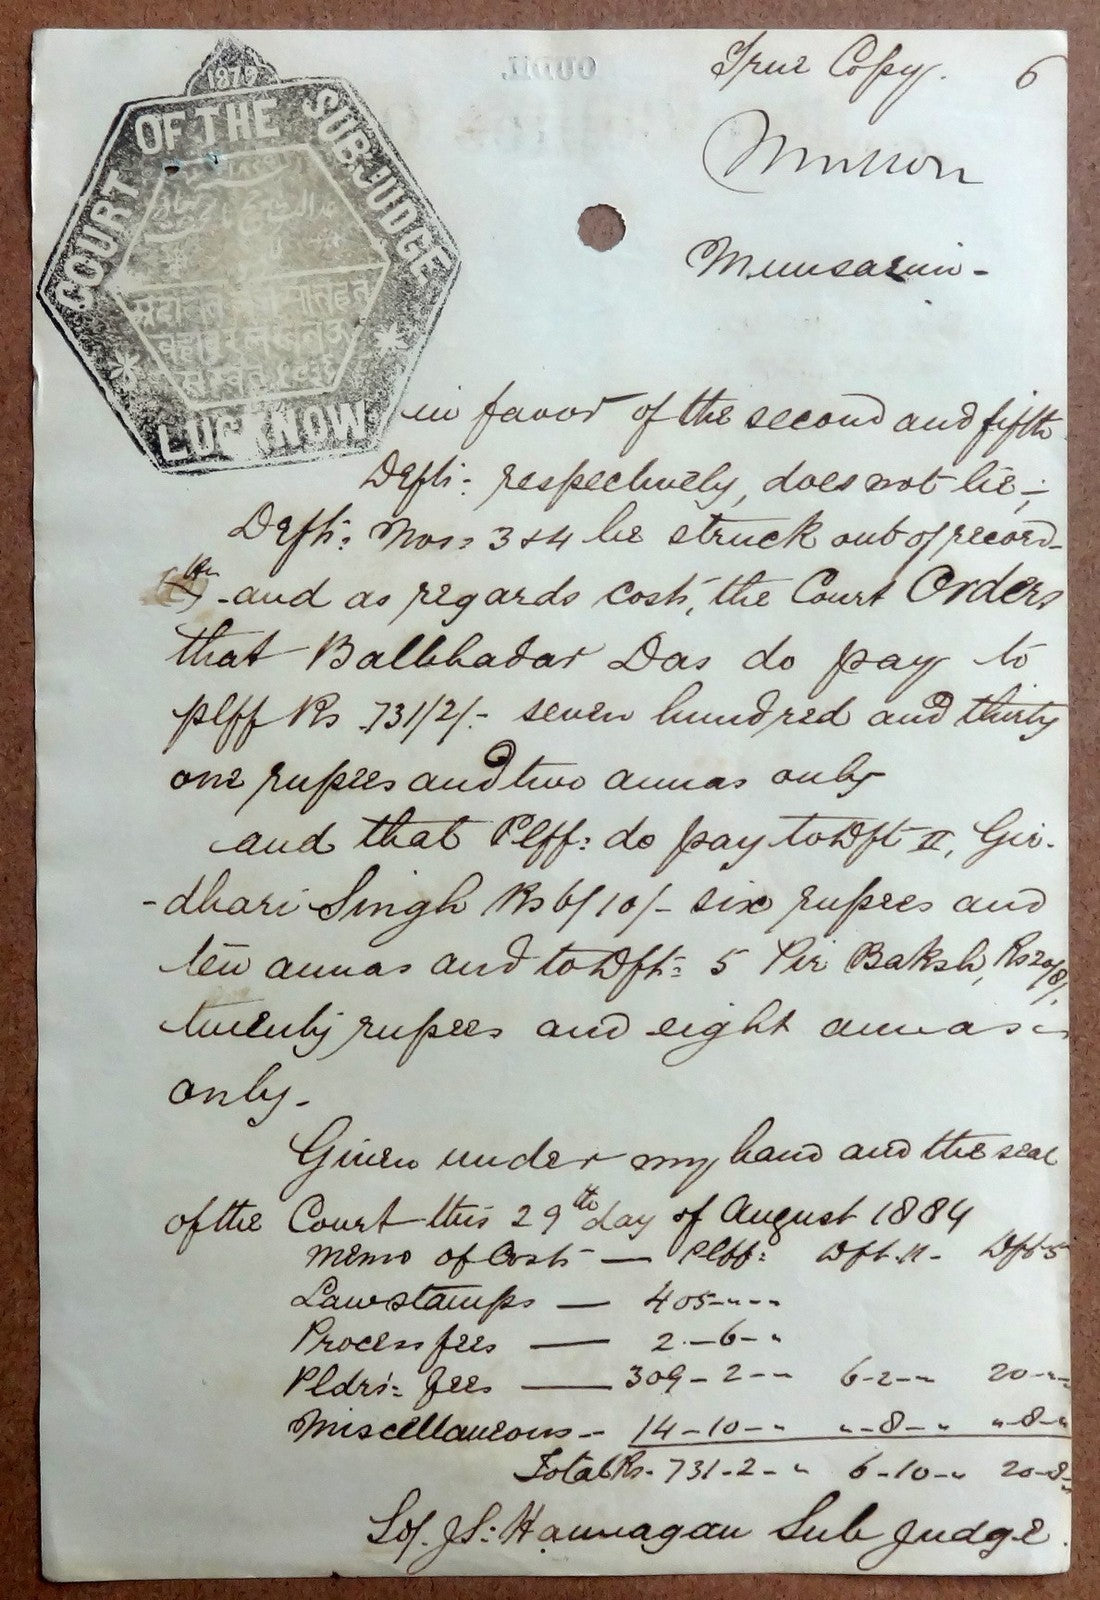 1879
COURT OF THE SUB: JUDGE
LUCKNOW
OUDH.
True Copy. 6
Munsarim -
in favor of the second and fifth
Defts: respectively, does not lie -;
Defts: Nos: 3 & 4 be struck out of record -
- and as regards costs, the Court Orders
that Balbhadar Das do pay to
plff Rs 731/2/- seven hundred and thirty
one rupees and two annas only
and that Plff: do pay to Dft II, Gir-
-dhari Singh Rs 6/10/- six rupees and
ten annas and to Dft: 5 Pir Baksh, Rs 20/8/-
twenty rupees and eight annas -
only -
Given under my hand and the seal
of the Court this 29th day of August 1884
Memo of Costs — Plff: Dft. II - Dft 5
Law stamps — 405 - " - "
Process fees — 2 - 6 - "
Pldrs: fees — 309 - 2 - " 6 - 2 - " 20 - " - "
Miscellaneous - 14 - 10 - " " - 8 - " " - 8 - "
Total Rs. 731 - 2 - " 6 - 10 - " 20 - 8 - "
Sub Judge.